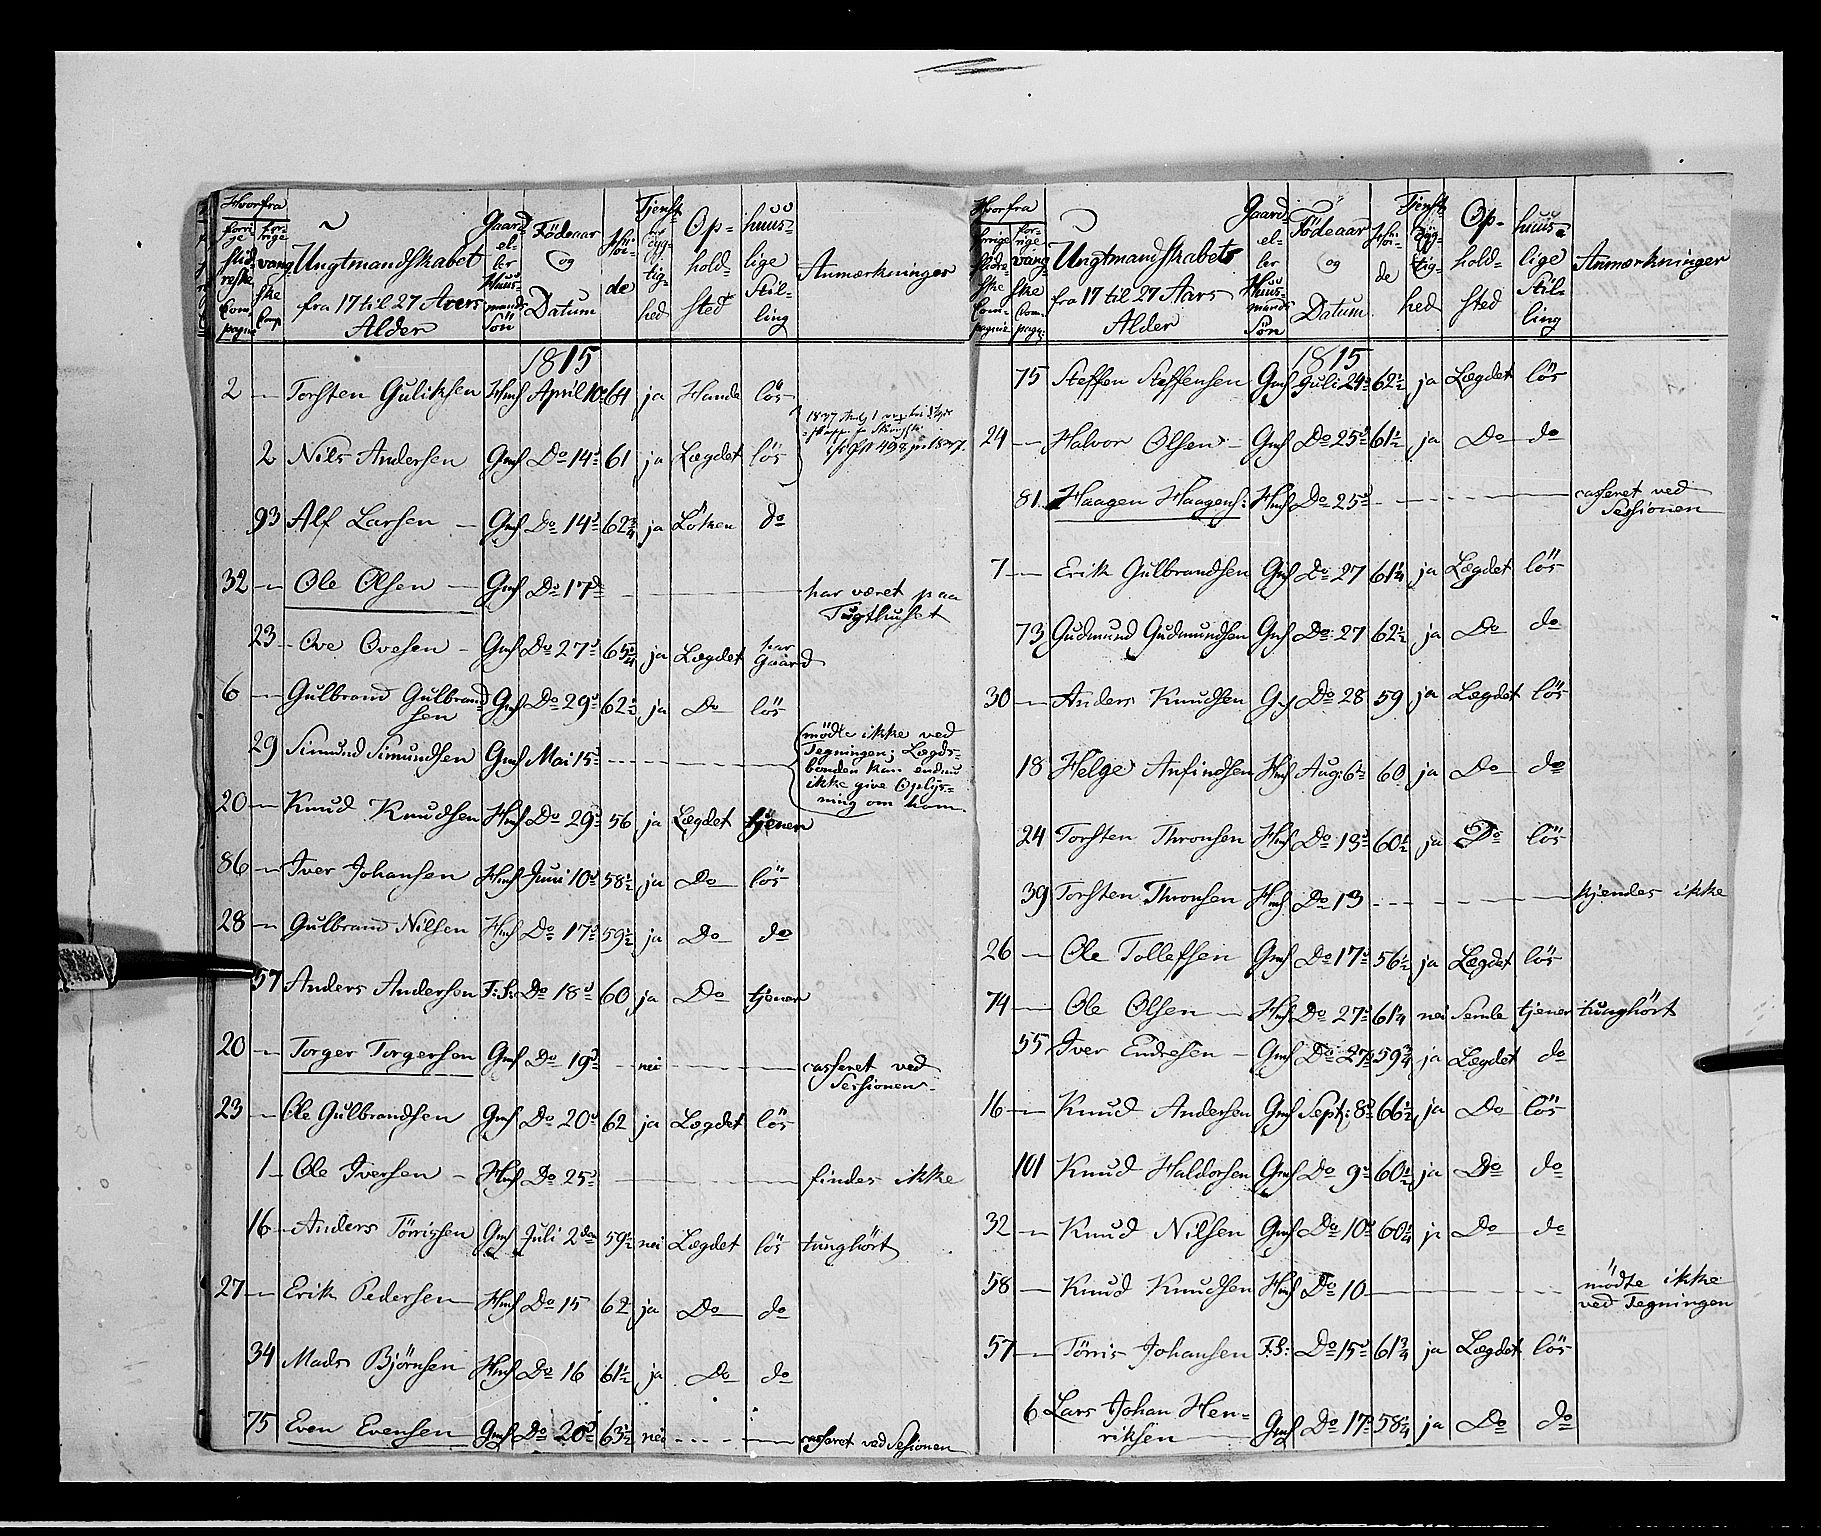 Hvorfra
forrige Slidreske Compagnie | forrige vangske Comp. | Ungtmandskabet fra 17 til 27 Aars Alder | Gaard eller Huusmands Sön | Födeaar og Datum | Höide | Tjenstdygtighed | Opholdsted | huuslige Stilling | Anmærkninger
1815
2 — Torsten Guliksen Hmś April 10 64 ja Hande lös
2 Nils Andersen Gmś Do 14d 61 ja Lægdet lös
93 Alf Larsen — Gmś Do 14d 62 3/4 ja Löken do
32 — Ole Olsen — Gmś Do 17d — har været paa Tugthuset
23 — Ove Ovesen — Gmś Do 27d 65 3/4 ja Lægdet har Gaard
6 — Gulbrand Gulbrandsen Gmś Do 29d 62 1/2 ja Do lös
29 Simund Simundsen Gmś Mai 15d — mödte ikke ved Tegningen; Lægdsbonden kan endnu ikke give Oplysning om ham
20 — Knud Knudsen Hmś Do 29d 56 ja Lægdet tjener
86 — Iver Johansen Hmś Juni 10d 58 1/2 ja Do lös
28 — Gulbrand Nilsen Hmś Do 17d 59 1/2 ja Do do
57 Anders Andersen F:S: Do 18d 60 ja Do tjener
20 — Torger Torgersen Gmś Do 19d — nei — casseret ved Sessionen
23 — Ole Gulbrandsen Gmś Do 20d 62 ja Lægdet lös
1 — Ole Iversen — Hmś Do 25d — findes ikke
16 — Anders Törrissen Gmś Juli 2den 59 1/2 nei Lægdet lös tunghört
27 — Erik Pedersen Hmś Do 15 62 ja Do do
34 Mads Björnsen Hmś Do 16 61 1/2 ja Do do
75 Even Evensen Gmś Do 20d 63 1/2 nei — casseret ved Sessionen
Hvorfra
forrige Slidreske Compagnie | forrige vangske Compagn: | Ungtmandskabet fra 17 til 27 Aars Alder | Gaard eller Huusmands Sön | Födeaar og Datum | Höide | Tjenstdygtighed | Opholdsted | huuslige Stilling | Anmærkninger
1815
75 Steffen Steffensen Gmś Juli 24d 62 1/2 ja Lægdet lös
24 — Halvor Olsen — Gmś Do 25d 61 1/2 ja Do do
81 Haagen Haagens: Hmś Do 25d — casseret ved Sessionen
7 — Erik Gulbrandsen Gmś Do 27 61 1/4 ja Lægdet lös
73 Gudmund Gudmundsen Gmś Do 27 62 1/2 ja Do do
30 — Anders Knudsen Gmś Do 28 59 ja Lægdet lös
18 Helge Anfindsen Hmś Aug: 6te 60 ja Do do
24 Torsten Thronsen Hmś Do 13d 60 1/2 ja Do lös
39 Torsten Thronsen Hmś Do 13 — kjendes ikke
26 — Ole Tollefsen Gmś Do 17d 56 1/2 ja Lægdet lös
74 — Ole Olsen — Hmś Do 27d 61 1/4 nei Semle tjener tunghört
55 Iver Endresen — Gmś Do 27d 59 3/4 ja Lægdet do
16 — Knud Andersen Gmś Sept: 8d 66 1/2 ja Do lös
101 Knud Haldorsen Gmś Do 9d 60 1/2 ja Do do
32 — Knud Nilsen Gmś Do 10d 60 1/4 ja Do do
58 — Knud Knudsen Hmś Do 10 — mödte ikke ved Tegningen
57 — Törris Johansen F:S: Do 15d 61 3/4 ja Lægdet lös
6 Lars Johan Henriksen Gmś Do 17d 58 1/4 ja Do do